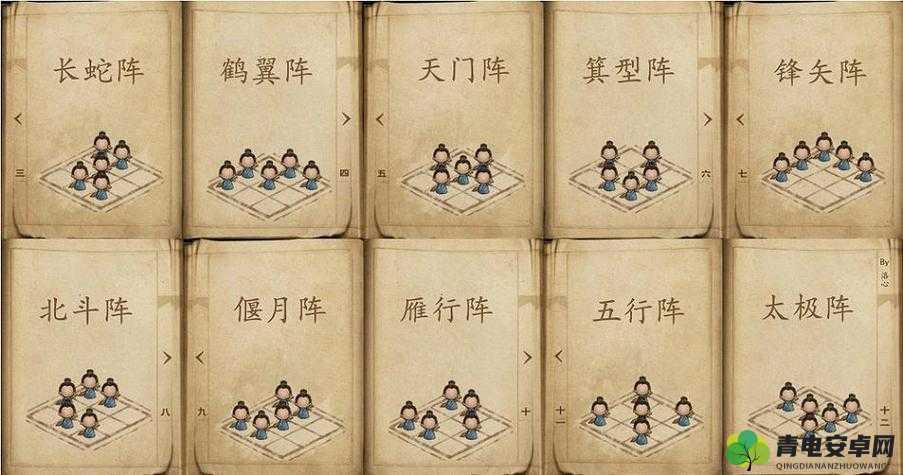 长蛇阵
三
鹤翼阵
四
天门阵
五
箕型阵
六
锋矢阵
七
北斗阵
八
偃月阵
九
雁行阵
十
五行阵
十一
太极阵
十二
By
洛心
青电安卓网
QINGDIANANZHUOWANG